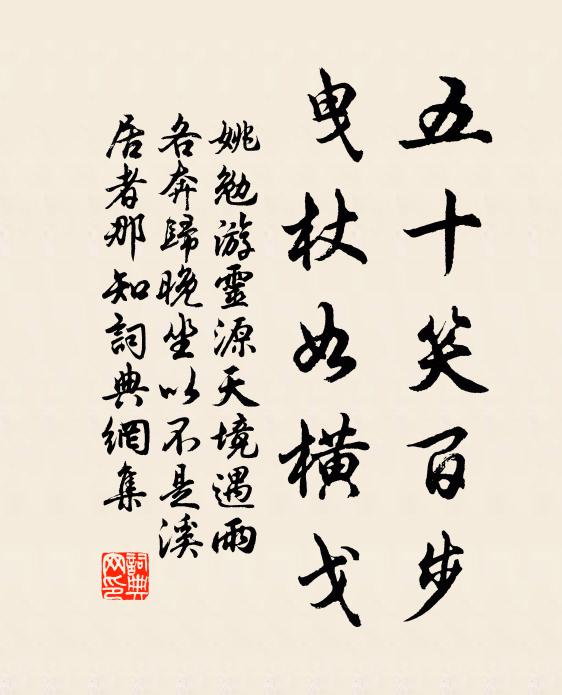 五十笑百步
曳杖如橫戈
姚勉游靈源天境遇雨
各奔歸晚坐以不是溪
居者那知詞典網集
詞典網印